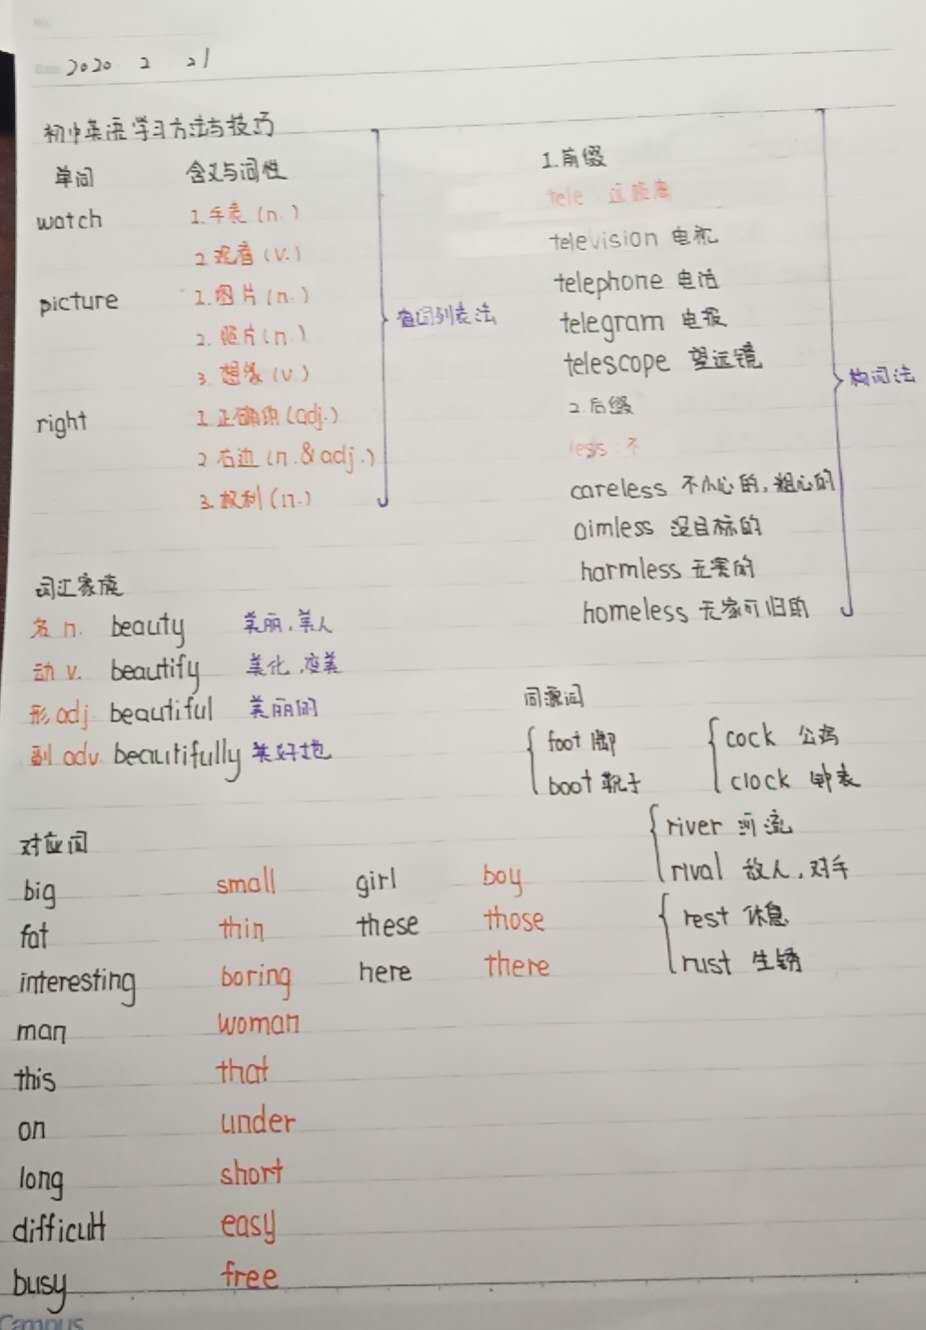 2020 2 21
初中英语学习方法与技巧
单词 含义与词性
watch 1.手表(n.)
2.观看(v.)
picture 1.图片(n.)
2.照片(n.)
3.想象(v.)
right 1.正确的(adj.)
2.右边(n.&adj.)
3.权利(n.)
查词列表法
1.前缀
tele 远距离
television 电视
telephone 电话
telegram 电报
telescope 望远镜
2.后缀
less:不
careless 不小心的,粗心的
aimless 没目标的
harmless 无害的
homeless 无家可归的
构词法
词汇家族
名 n. beauty 美丽,美人
动 v. beautify 美化,变美
形 adj beautiful 美丽的
副 adv beautifully 美好地
同源词
foot 脚
boot 靴子
cock 公鸡
clock 钟表
river 河流
rival 敌人,对手
rest 休息
rust 生锈
对应词
big small girl boy
fat thin these those
interesting boring here there
man woman
this that
on under
long short
difficult easy
busy free
Campus